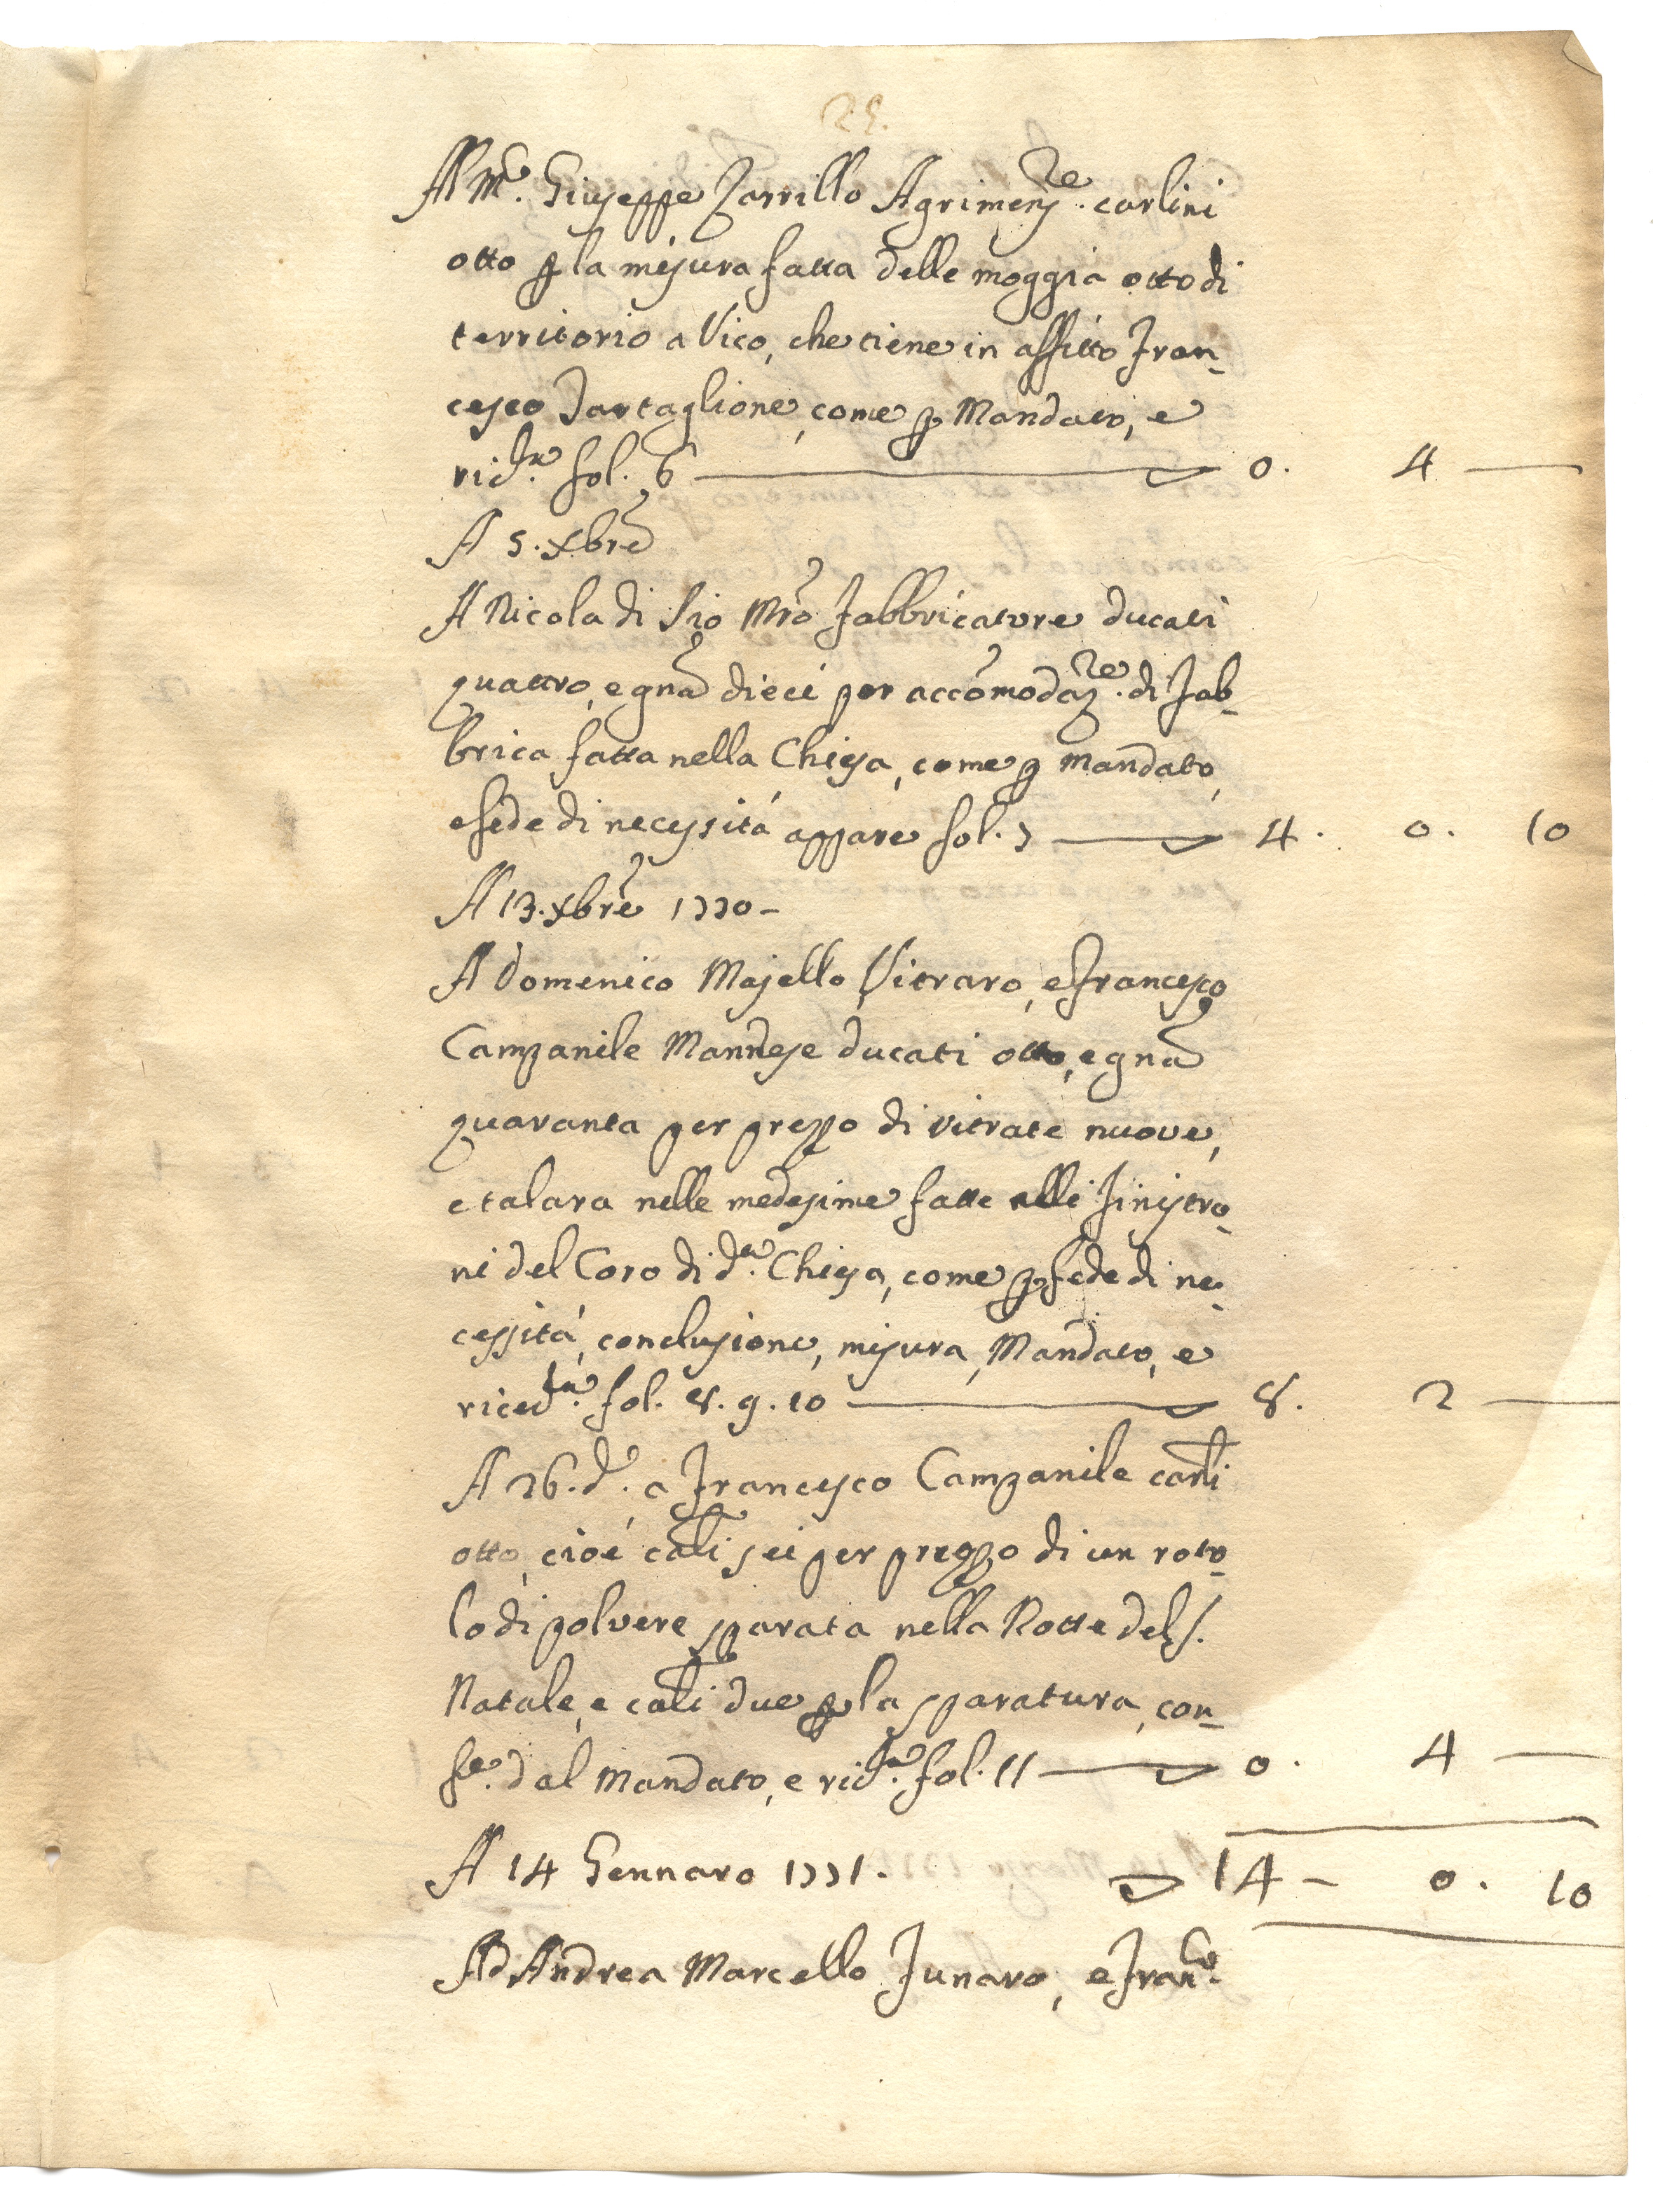 29.
Al M.co Giuseppe Zarrillo Agrimens.re carlini
otto p la misura fatta delle moggia otto di
territorio a Vico, che tiene in affitto Fran-
cesco Tartaglione, come p Mandato, e
ric.ta fol. 6 0. 4 —
A 5. Xbre
A Nicola di Sio Mro Fabbricatore ducati
quattro, e gna dieci per accomodaz.re di Fab-
brica fatta nella Chiesa, come p Mandato,
e fede di necessità appare fol. 7 4. 0. 10
A 13. Xbre 1770 -
A Domenico Majello Vitraro, e Francesco
Campanile Mannese ducati otto, e gna
quaranta per prezzo di vitrate nuove,
e talara nelle medesime fatte alli Finistro-
ni del Coro di d.a Chiesa, come p fede di ne-
cessità, conclusione, misura, Mandato, e
riced.ta fol. 8. 9. 10 8. 2 —
A 26. d.o a Francesco Campanile carli
otto, cioè cali sei per prezzo di un roto-
lo di polvere sparata nella Notte del S.
Natale, e cali due p la sparatura, con-
fe. dal Mandato, e ric.ta fol. 11 0. 4 —
A 14 Gennaro 1771. 14 - 0. 10
Ad Andrea Marcello Funaro, e Fran.co